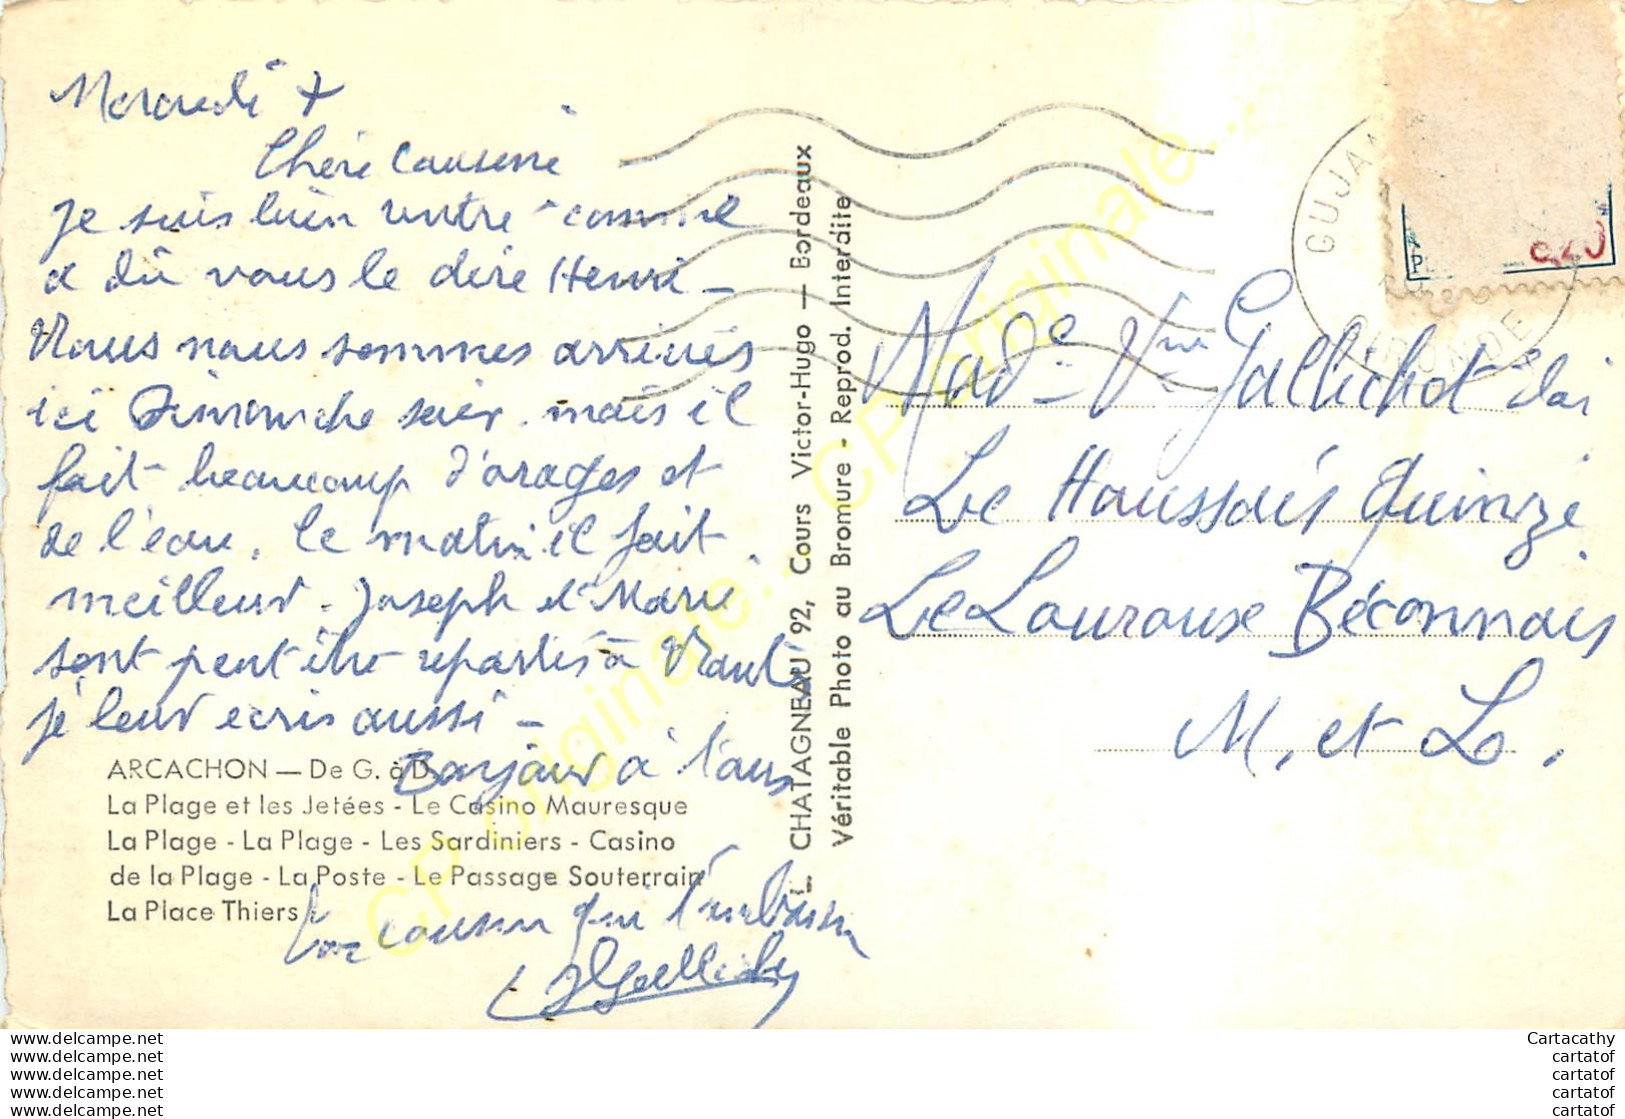 Mercredi +
Chère Cousine
je suis bien rentré comme
a dû vous le dire Henri -
Nous nous sommes arrivés
ici Dimanche soir. mais il
fait beaucoup d'orages et
de l'eau. le matin il fait
meilleur. Joseph et Marie
sont peut être repartis à Nantes
je leur écris aussi -
Bonjour à tous
cousin qui t'embrasse
Gallichot
ARCACHON — De G. à D.
La Plage et les Jetées - Le Casino Mauresque
La Plage - La Plage - Les Sardiniers - Casino
de la Plage - La Poste - Le Passage Souterrain
La Place Thiers
L. CHATAGNEAU 92, Cours Victor-Hugo — Bordeaux
Véritable Photo au Bromure - Reprod. Interdite
GUJAN
GIRONDE
0,20
Made Vve Gallichot
Le Haussais Quinze
Le Louroux Béconnais
M. et L.
CP originale...
CP originale...
CP originale...
www.delcampe.net
www.delcampe.net
www.delcampe.net
www.delcampe.net
www.delcampe.net
Cartacathy
cartatof
cartatof
cartatof
cartatof